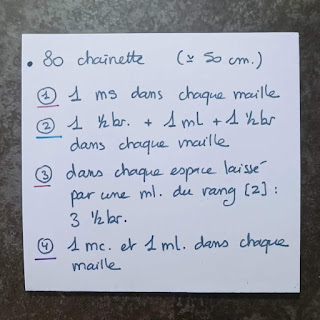 • 80 chaînette (± 50 cm.)
① 1 ms dans chaque maille
② 1 ½ br. + 1 ml + 1 ½ br
dans chaque maille
③ dans chaque espace laissé
par une ml. du rang [2] :
3 ½ br.
④ 1 mc. et 1 ml. dans chaque
maille